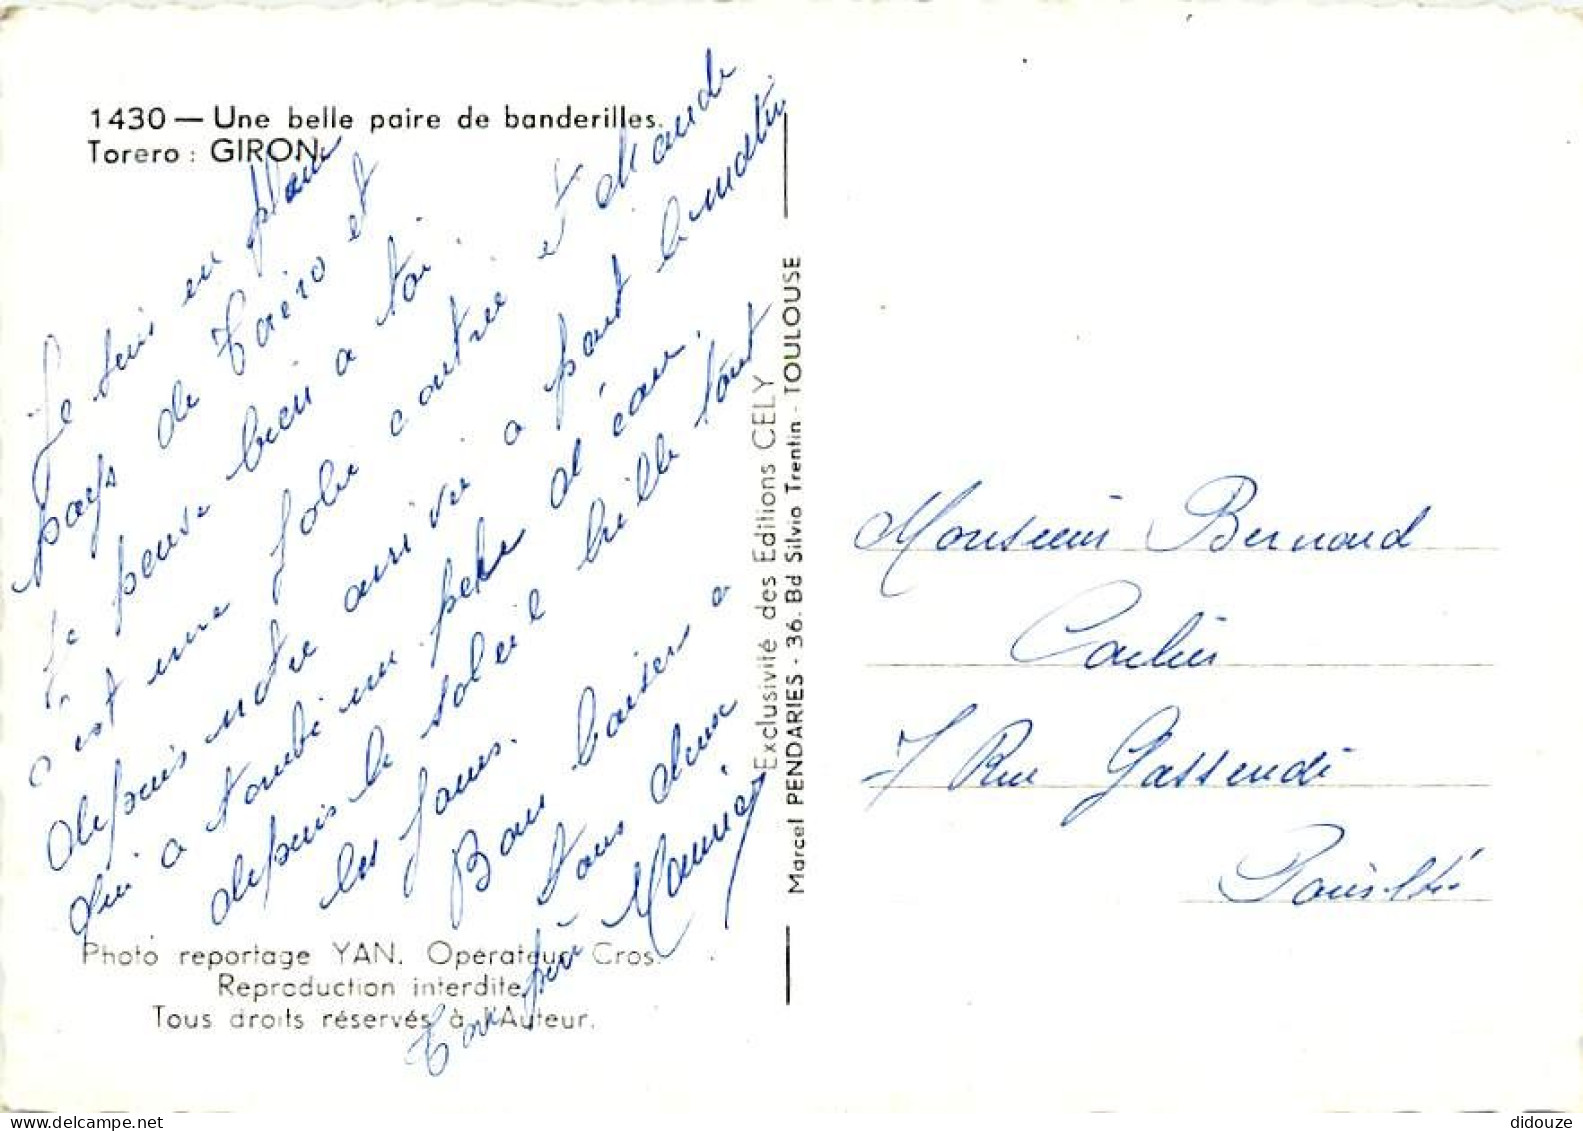 1430 — Une belle paire de banderilles.
Torero : GIRON.
Je suis en plein
pays de Toréro et
Je pense bien a toi.
c'est une jolie contrée et chaude
depuis notre arrivée a part le matin
qui a tombé un peu d'eau.
depuis le soleil brille tout
les jours.
Bon baiser a
tous deux
Ton père
Maurice
Photo reportage YAN. Opérateur Cros.
Reproduction interdite.
Tous droits réservés à l'Auteur.
Exclusivité des Editions CELY
Marcel PENDARIES - 36. Bd Silvio Trentin - TOULOUSE
Monsieur Bernard
7 Rue Gassendi
didouze